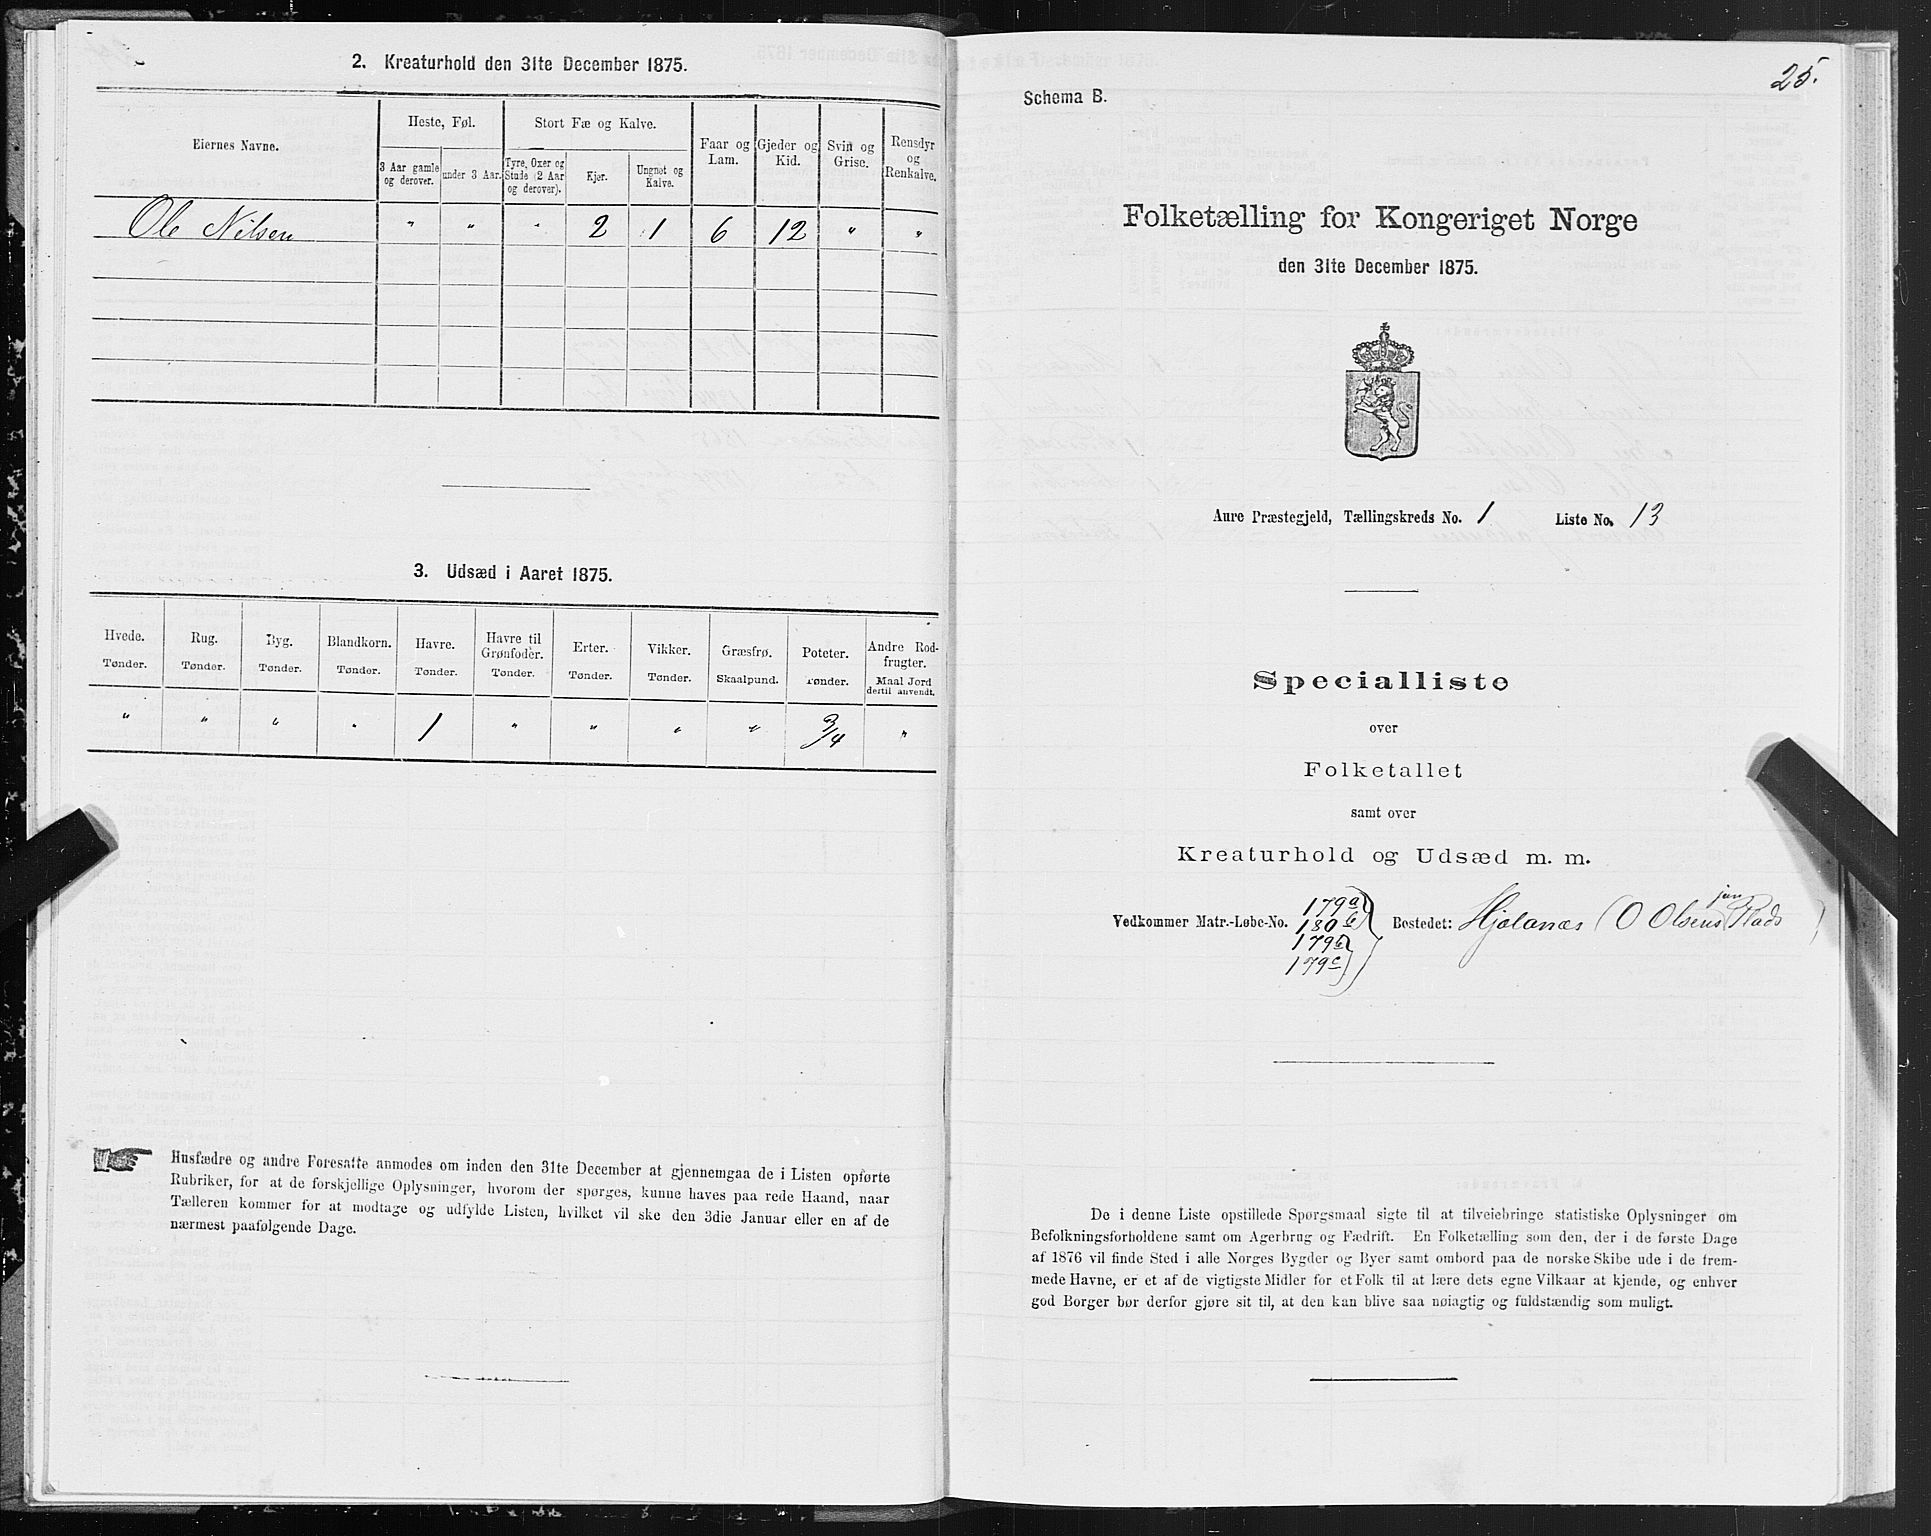 2. Kreaturhold den 31te December 1875.
Eiernes Navne.
Heste, Føl.
Stort Fæ og Kalve.
Faar og Lam.
Gjeder og Kid.
Svin og Grise.
Rensdyr og Renkalve.
3 Aar gamle og derover.
under 3 Aar.
Tyre, Oxer og Stude (2 Aar og derover).
Kjør.
Ungnøt og Kalve.
Ole Nilsen " " " 2 1 6 12 " "
3. Udsæd i Aaret 1875.
Hvede. Rug. Byg. Blandkorn. Havre. Havre til Grønfoder. Erter. Vikker. Græsfrø. Poteter. Andre Rodfrugter.
Tønder. Tønder. Tønder. Tønder. Tønder. Tønder. Tønder. Tønder. Skaalpund. Tønder. Maal Jord dertil anvendt.
" " " " 1 " " " " 3/4 "
Husfædre og andre Foresatte anmodes om inden den 31te December at gjennemgaa de i Listen opførte
Rubriker, for at de forskjellige Oplysninger, hvorom der spørges, kunne haves paa rede Haand, naar
Tælleren kommer for at modtage og udfylde Listen, hvilket vil ske den 3die Januar eller en af de
nærmest paafølgende Dage.
25.
Schema B.
Folketælling for Kongeriget Norge
den 31te December 1875.
Aure Præstegjeld, Tællingskreds No. 1 Liste No. 13
Specialliste
over
Folketallet
samt over
Kreaturhold og Udsæd m. m.
Vedkommer Matr.-Løbe-No. 179a 180b 179b 179c Bostedet: Hjelanæs (O Olsens jun Plads)
De i denne Liste opstillede Spørgsmaal sigte til at tilveiebringe statistiske Oplysninger om
Befolkningsforholdene samt om Agerbrug og Fædrift. En Folketælling som den, der i de første Dage
af 1876 vil finde Sted i alle Norges Bygder og Byer samt ombord paa de norske Skibe ude i de frem-
mede Havne, er et af de vigtigste Midler for et Folk til at lære dets egne Vilkaar at kjende, og enhver
god Borger bør derfor gjøre sit til, at den kan blive saa nøiagtig og fuldstændig som muligt.